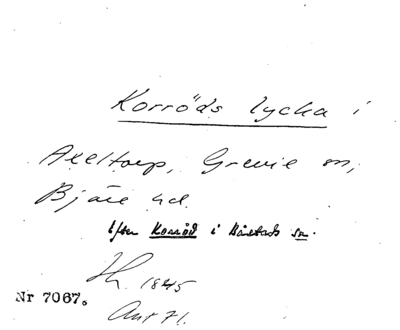 Korröds lycka i
Axeltorp, Grevie sn,
Bjäre hd.
efter Korröd i Båstads sn.
1845
Nr 7067.
Ant 71.